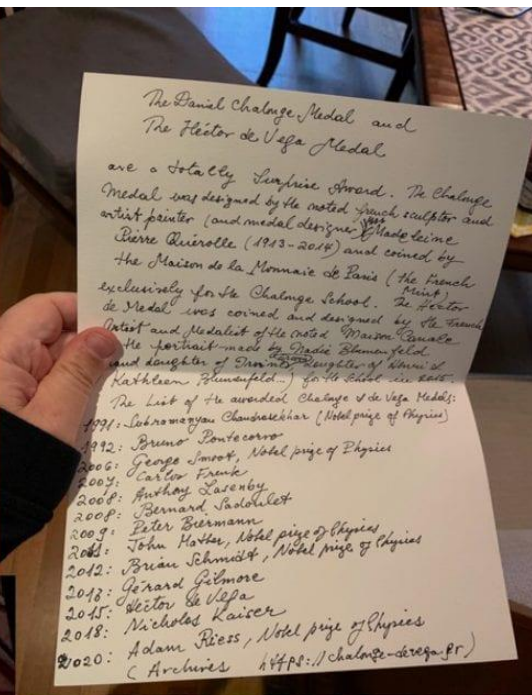 The Daniel Chalonge Medal and
The Héctor de Vega Medal
are a totally Surprise Award. The Chalonge
Medal was designed by the noted french sculptor and
artist painter (and medal designer) Madeleine
Pierre Quérolle (1913-2014) and coined by
the Maison de la Monnaie de Paris (the French
Mint)
exclusively for the Chalonge School. The Héctor
de Medal was coined and designed by the French
Artist and Medalist of the noted Maison Canale
the portrait made by Nadia Blumenfeld
and daughter of daughter of Henri &
Kathleen Blumenfeld...) for the School in 2015.
The List of the awarded Chalonge & de Vega Medals:
1991: Subramanyan Chandrasekhar (Nobel prize of Physics)
1992: Bruno Pontecorvo
2006: George Smoot, Nobel prize of Physics
2007: Carlos Frenk
2008: Anthony Lasenby
2008: Bernard Sadoulet
2009: Peter Biermann
2011: John Mather, Nobel prize of Physics
2012: Brian Schmidt, Nobel prize of Physics
2013: Gérard Gilmore
2015: Héctor de Vega
2018: Nicholas Kaiser
2020: Adam Riess, Nobel prize of Physics
(Archives https://chalonge-devega.fr)